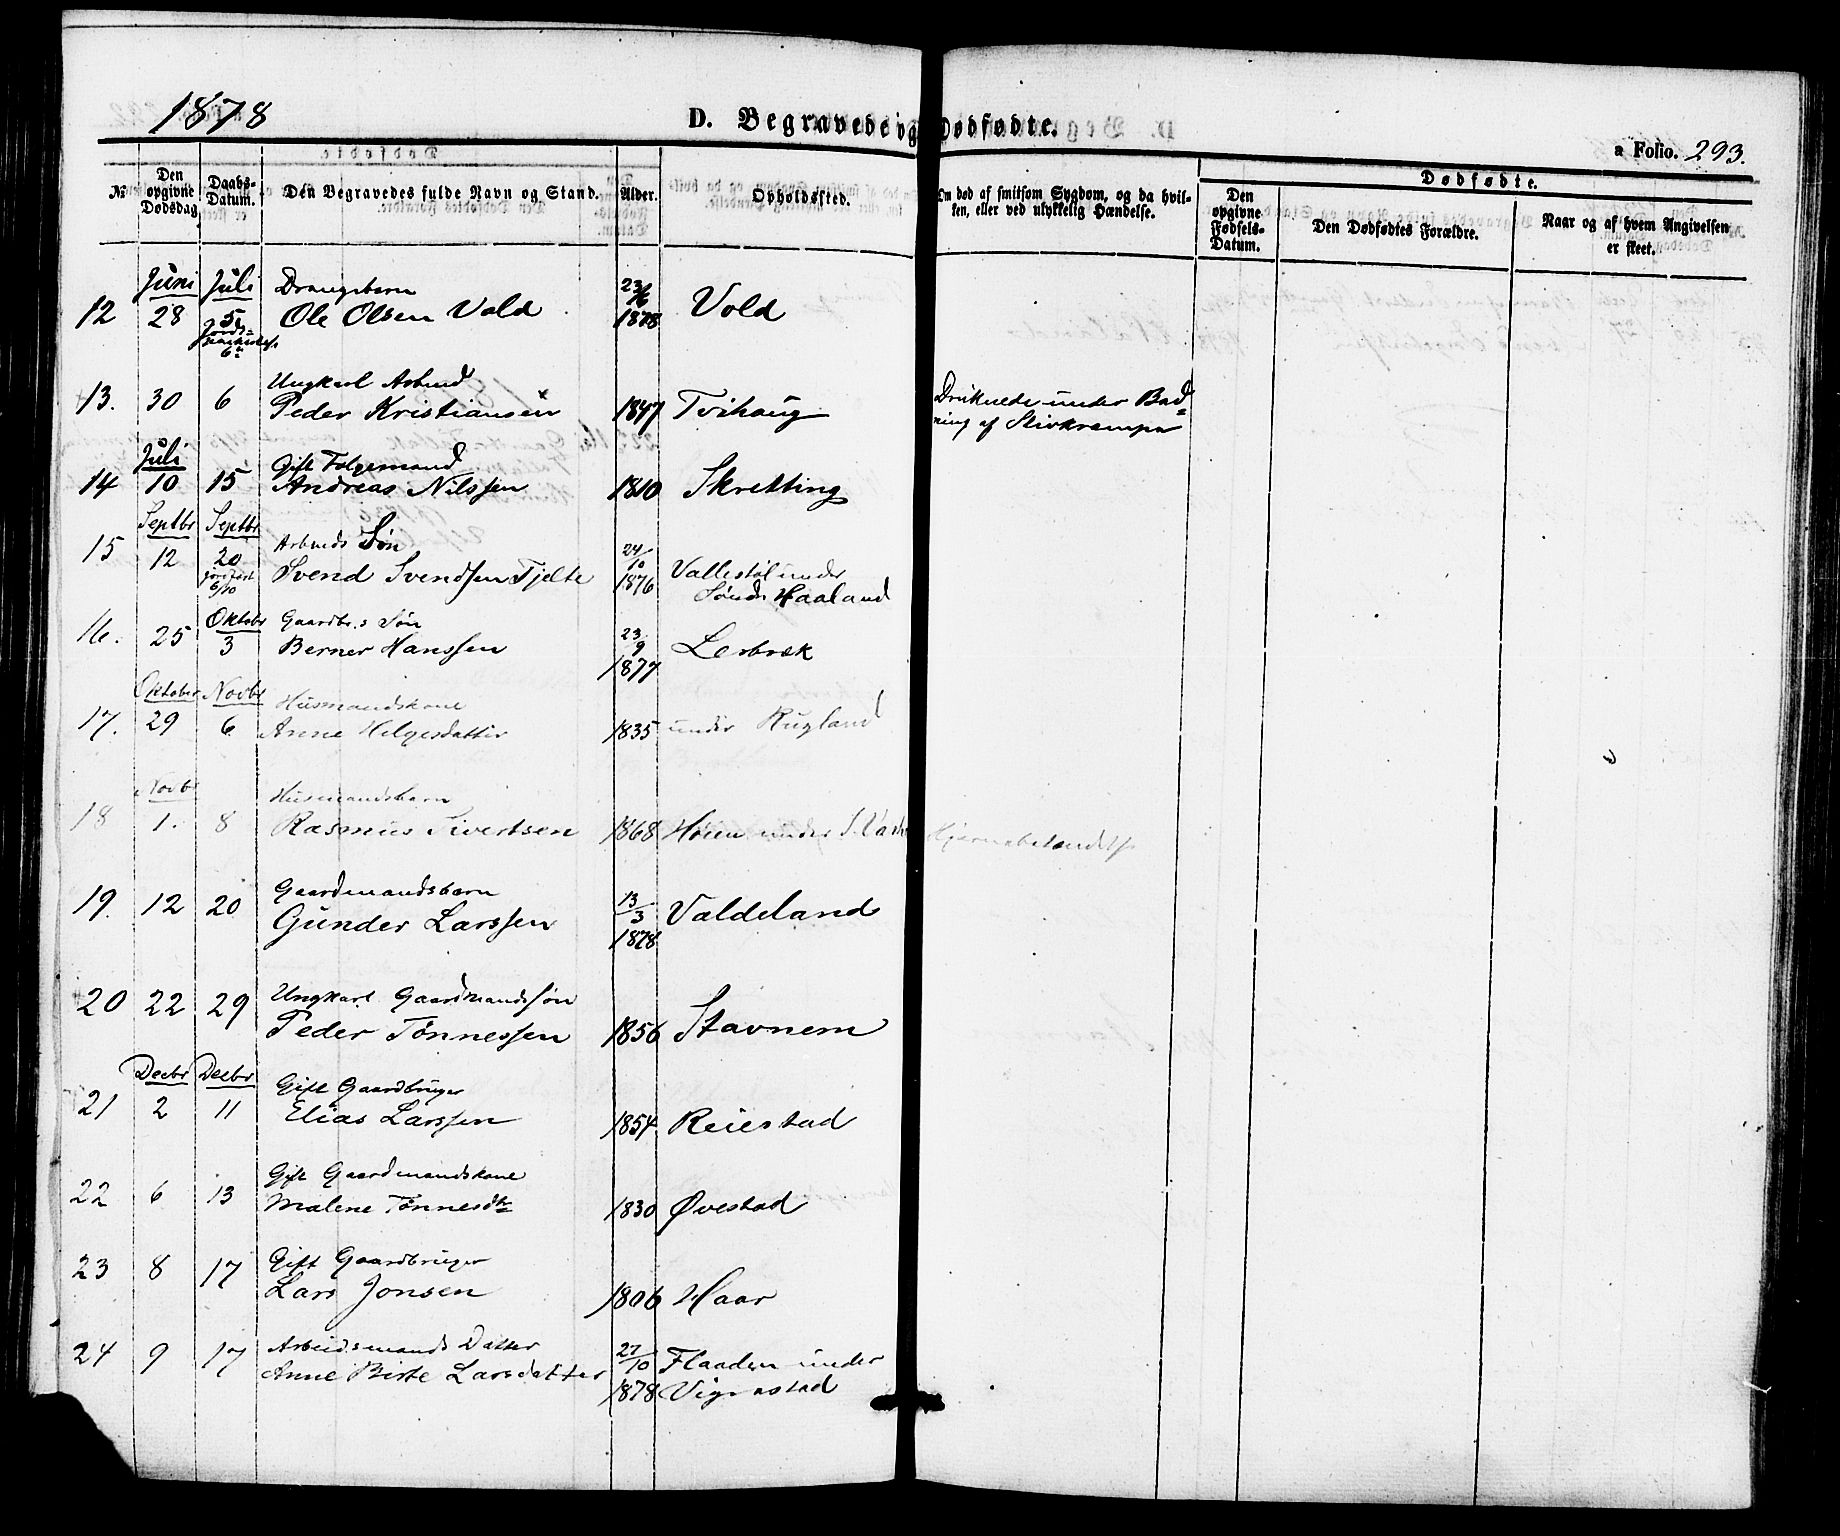 1878
D. Begravede og Dødfødte.
a Folio. 293.
№
Den opgivne Dødsdag
Daabs-Datum.
Den Begravedes fulde Navn og Stand.
Alder.
Opholdssted.
Om død af smitsom Sygdom, og da hvil-
ken, eller ved ulykkelig Hændelse.
Dødfødte.
Den opgivne Fødsels-Datum.
Den Dødfødtes Forældre.
Naar og af hvem Angivelsen
er skeet.
Juni Juli Drengebarn 23/6
12 28 5 Ole Olsen Vold 1878 Vold
6te
Ungkarl Arbmd
13. 30 6 Peder Kristiansen 1847 Tvihaug Druknede under Bad=
ning af Stivkrampe
Juli Gift Følgemand
14 10 15 Andreas Nilssen 1810 Skretting
Septbr Septbr Arbmds Søn 24/10
15 12 20 Svend Svendsen Tjelte 1876 Vallestøl under
jordfæst 6/10 Søndr Haaland
Oktobr Gaardbr.s Søn 23/9
16. 25 3 Berner Hanssen 1877 Lerbræk
Oktober Novbr Husmandskone
17. 29 6 Anne Helgesdatter 1835 under Rugland
Novbr Husmandsbarn
18 1. 8 Rasmus Sivertsen 1868 Høien under S. Hjernebetændelse
Gaardmandsbarn 13/3
19. 12 20 Gunder Larssen 1878 Valdeland
Ungkarl Gaardmandssøn
20 22 29 Peder Tønnessen 1856 Stavnem
Decbr Decbr Gift Gaardbruger
21 2 11 Elias Larssen 1854 Reiestad
Gift Gaardmandskone
22 6 13 Malene Tønnesdtr 1830 Øvestad
Gift Gaardbruger
23 8 17 Lars Jonsen 1806 Haar
Arbeidsmands Datter 27/10
24 9 17 Anne Birte Larsdatter 1878 Flaaden under
Vigrestad